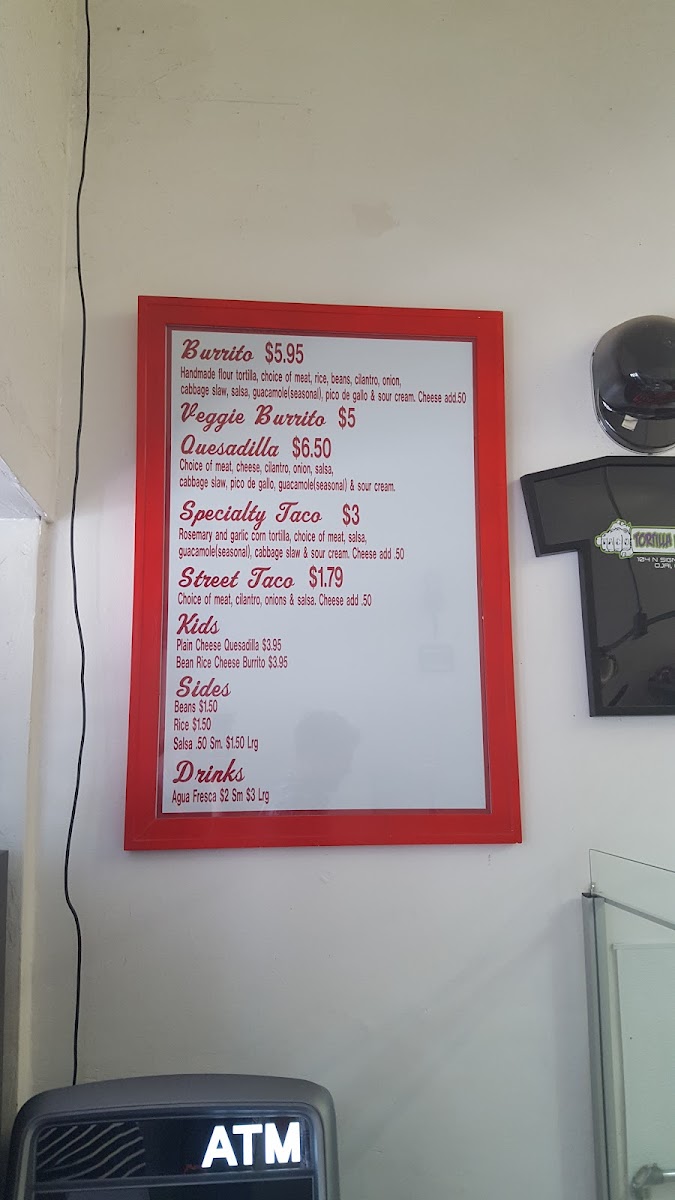 Burrito $5.95
Handmade flour tortilla, choice of meat, rice, beans, cilantro, onion,
cabbage slaw, salsa, guacamole(seasonal), pico de gallo & sour cream. Cheese add.50
Veggie Burrito $5
Quesadilla $6.50
Choice of meat, cheese, cilantro, onion, salsa,
cabbage slaw, pico de gallo, guacamole(seasonal) & sour cream.
Specialty Taco $3
Rosemary and garlic corn tortilla, choice of meat, salsa,
guacamole(seasonal), cabbage slaw & sour cream. Cheese add .50
Street Taco $1.79
Choice of meat, cilantro, onions & salsa. Cheese add .50
Kids
Plain Cheese Quesadilla $3.95
Bean Rice Cheese Burrito $3.95
Sides
Beans $1.50
Rice $1.50
Salsa .50 Sm. $1.50 Lrg
Drinks
Agua Fresca $2 Sm $3 Lrg
TORTILLA
104 N
ATM